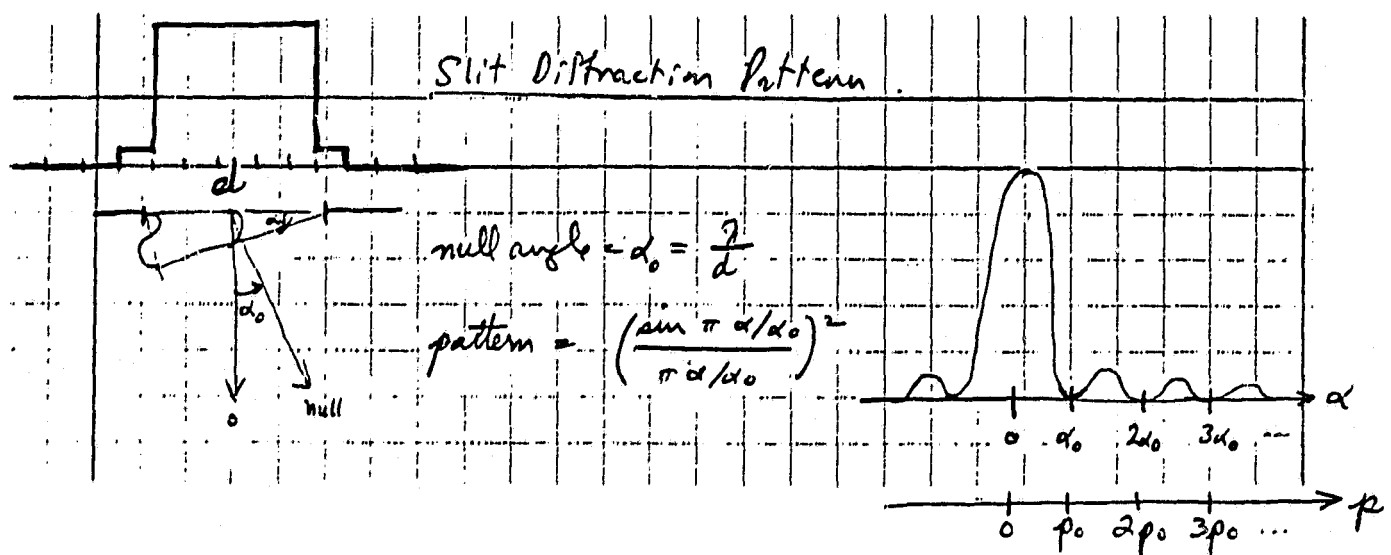 Slit Diffraction Pattern.
d
α
null angle = α₀ = λ/d
α₀
pattern = (sin π α/α₀ / π α/α₀)²
0 null
α
0 α₀ 2α₀ 3α₀ ...
p
0 p₀ 2p₀ 3p₀ ...